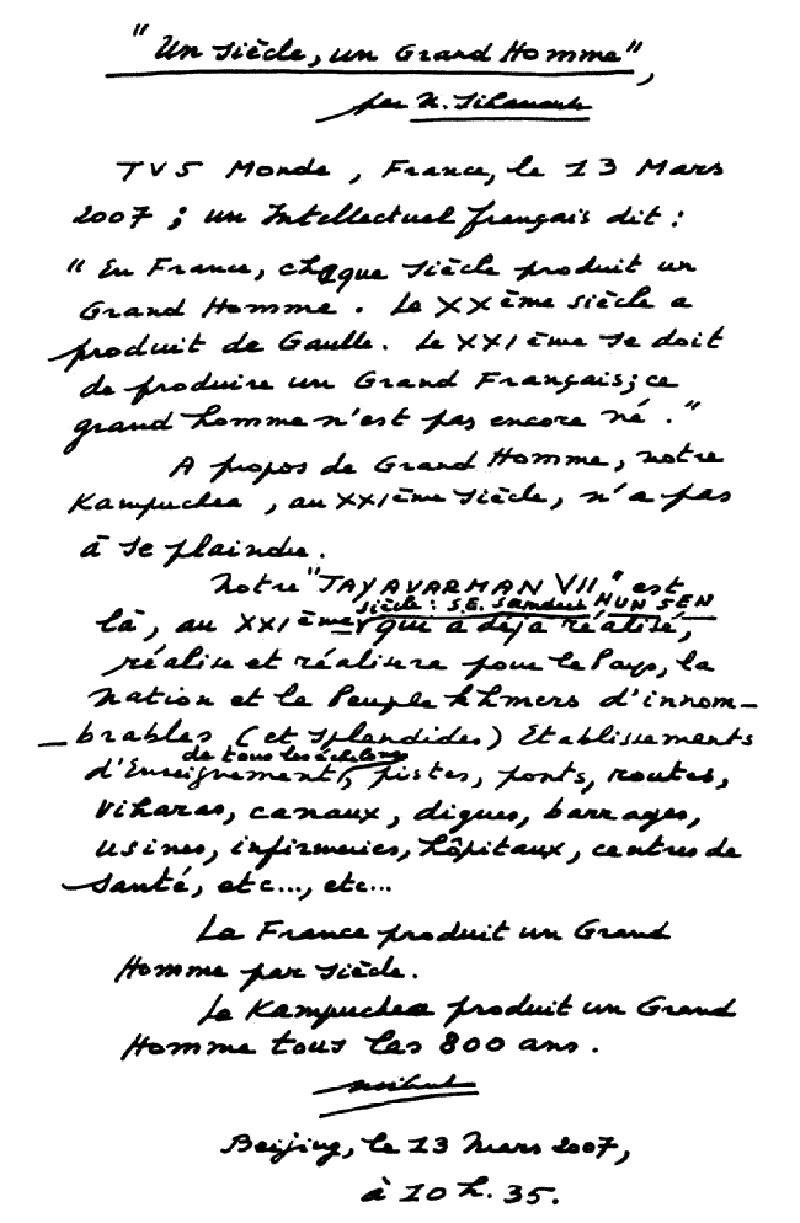 "Un siècle, un Grand Homme",
par N. Sihanouk
TV5 Monde, France, le 13 Mars
2007 ; un Intellectuel français dit :
"En France, chaque siècle produit un
Grand Homme. Le XXème siècle a
produit de Gaulle. Le XXIème se doit
de produire un Grand Français; ce
grand homme n'est pas encore né."
A propos de Grand Homme, notre
Kampuchea, au XXIème siècle, n'a pas
à se plaindre.
Notre "JAYAVARMAN VII" est
siècle : S.E. Samdech HUN SEN
là, au XXIème qui a déjà réalisé,
réalise et réalisera pour le Pays, la
Nation et le Peuple khmers d'innom-
-brables (et splendides) Etablissements
de tous les échelons
d'Enseignement, pistes, ponts, routes,
Viharas, canaux, digues, barrages,
usines, infirmeries, hôpitaux, centres de
santé, etc..., etc...
La France produit un Grand
Homme par siècle.
Le Kampuchea produit un Grand
Homme tous les 800 ans.
Beijing, le 13 Mars 2007,
à 10 h. 35.